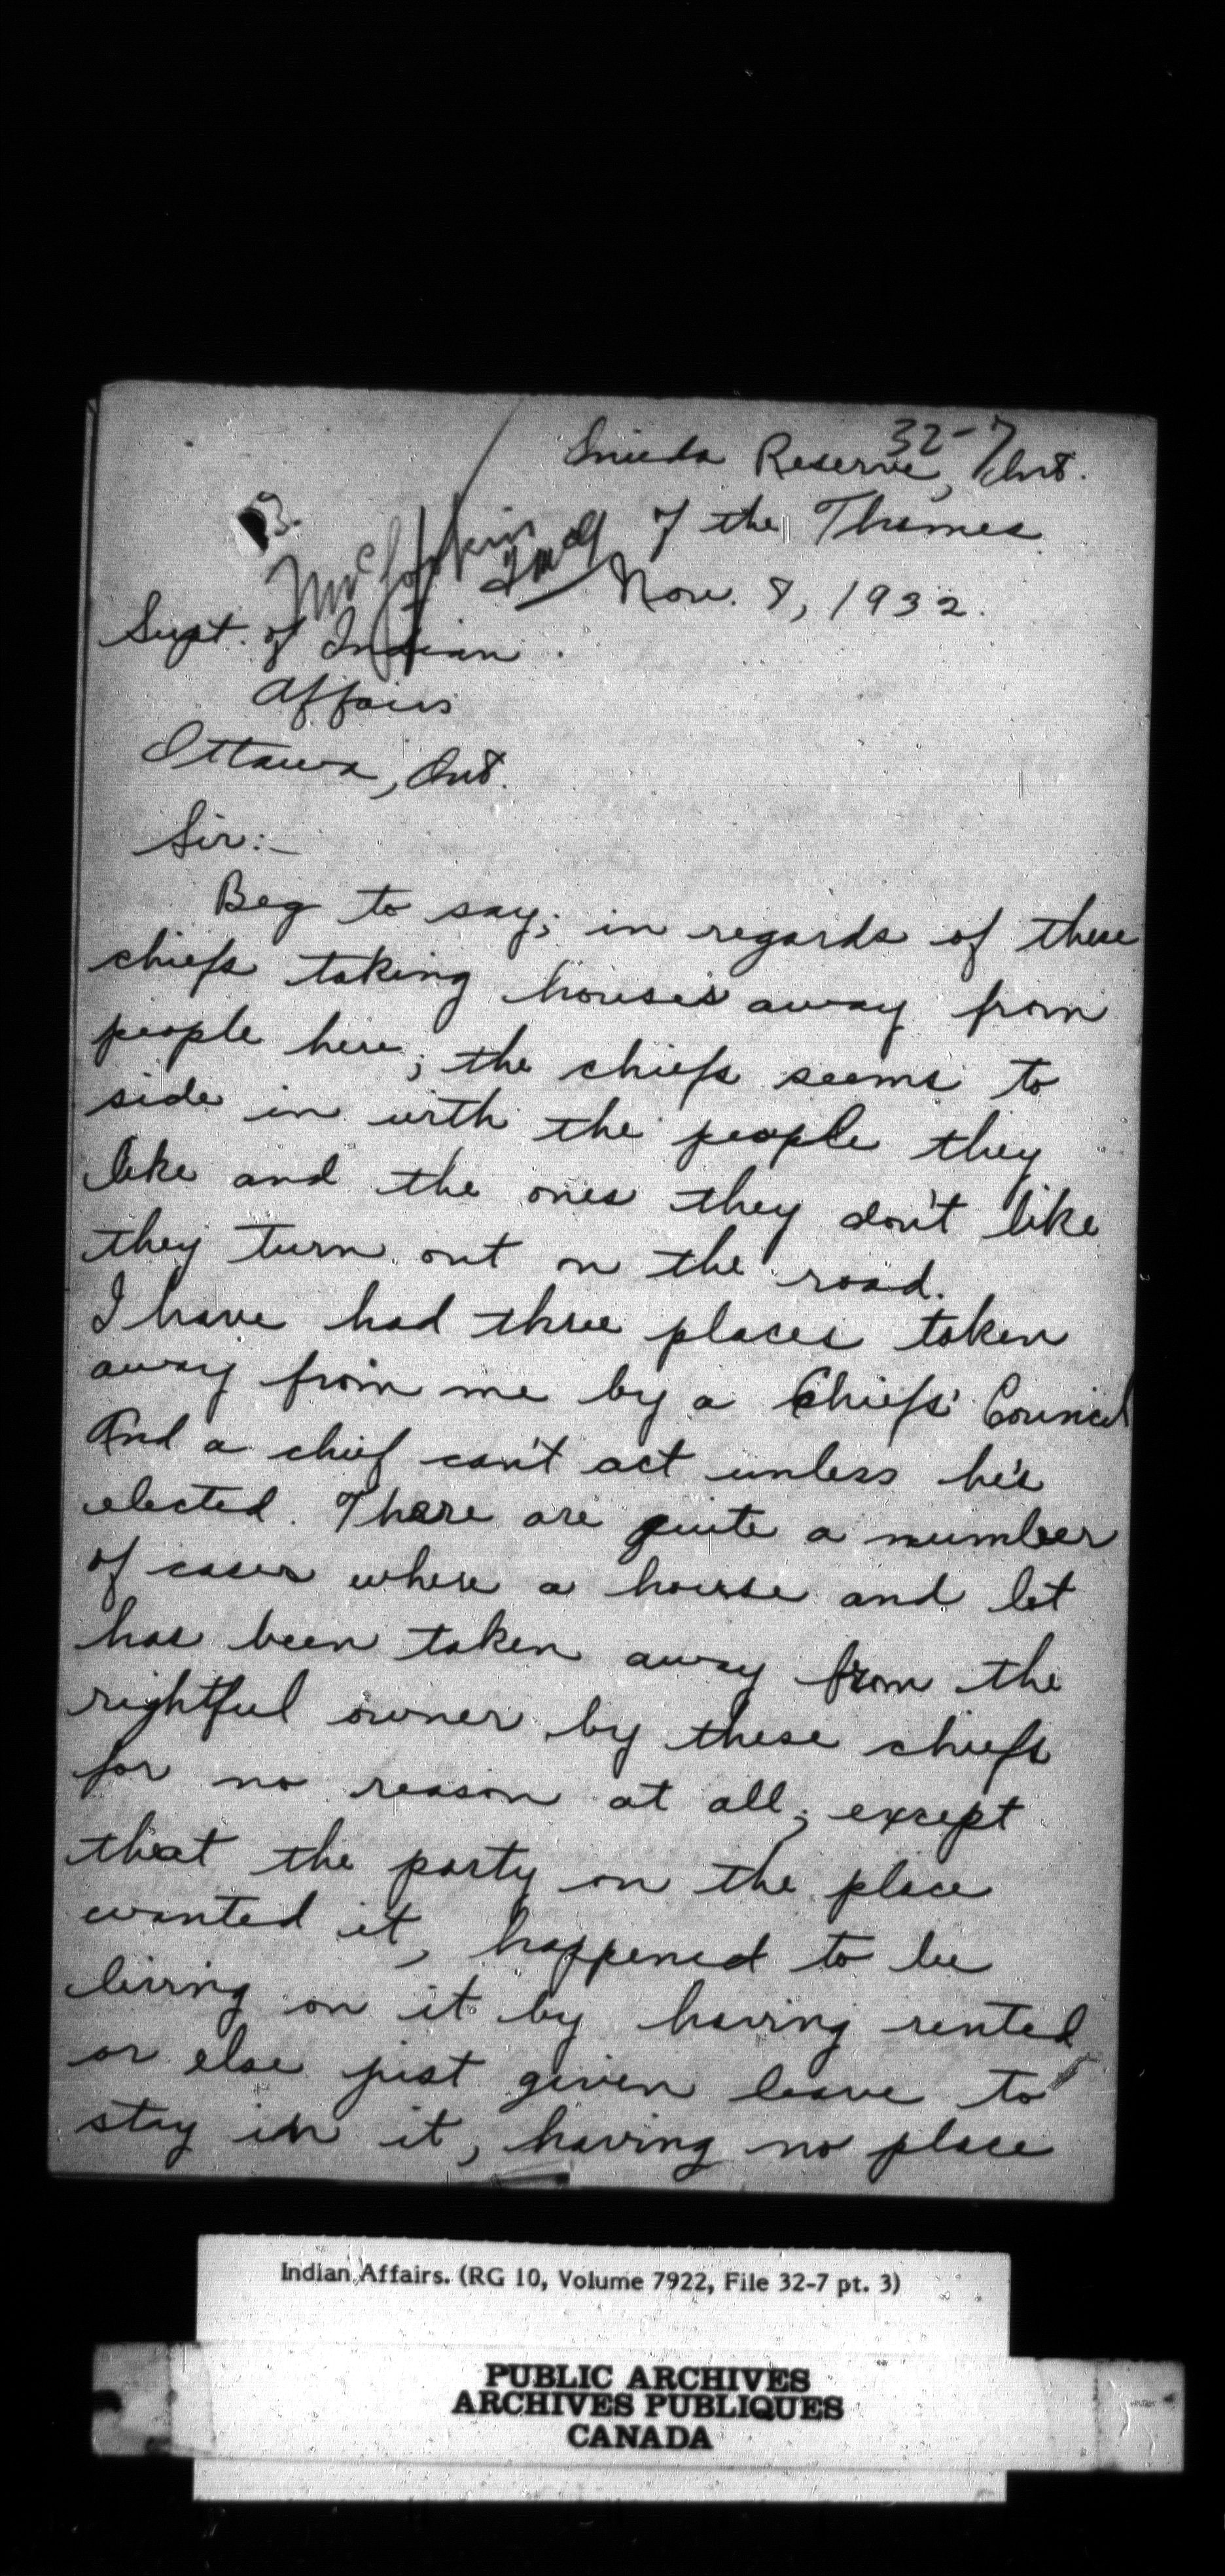 32-7
Oneida Reserve, Ont.
of the Thames
Nov. 8, 1932.
Supt. of Indian
Affairs
Ottawa, Ont.
Sir:-
Beg to say; in regards of these
chiefs taking houses away from
people here; the chiefs seems to
side in with the people they
like and the ones they don't like
they turn out on the road.
I have had three places taken
away from me by a Chiefs' Council
And a chief can't act unless he's
elected. There are quite a number
of cases where a house and lot
has been taken away from the
rightful owner by these chiefs
for no reason at all; except
that the party on the place
wanted it, happened to be
living on it by having rented
or else just given leave to
stay in it, having no place
Indian Affairs. (RG 10, Volume 7922, File 32-7 pt. 3)
PUBLIC ARCHIVES
ARCHIVES PUBLIQUES
CANADA